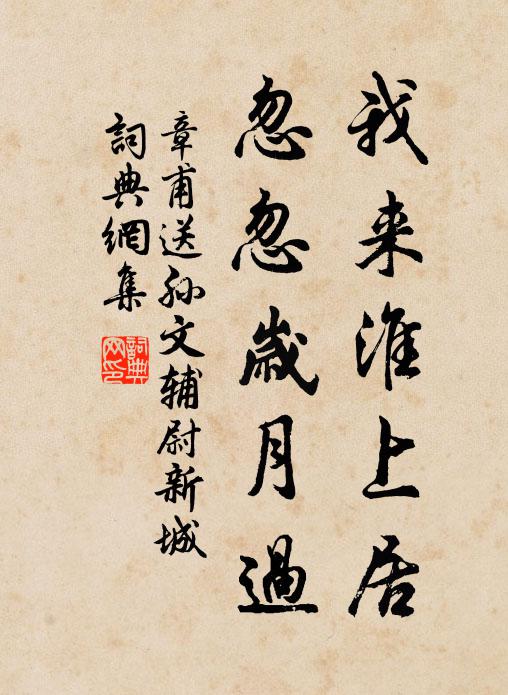 我来淮上居
忽忽歲月過
章甫送孙文辅尉新城
詞典網集
詞典网印